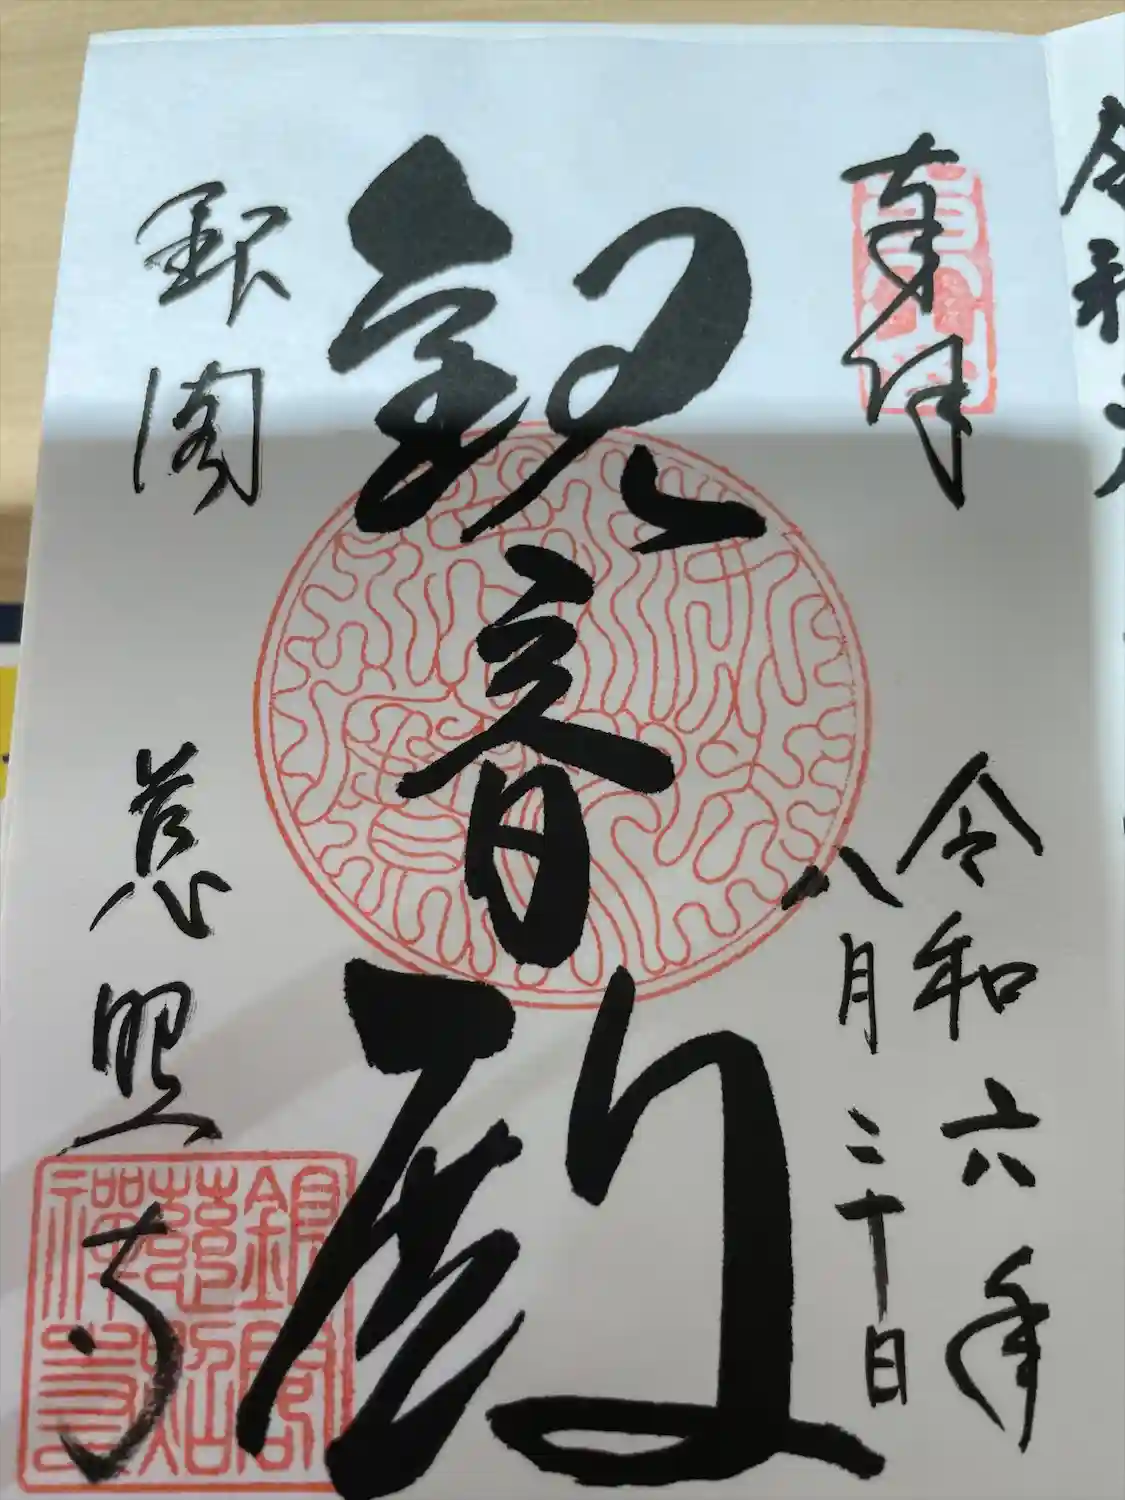 奉拝
令和六年
八月二十日
観音殿
銀閣
慈照寺
銀閣
慈照
禅寺
令和六